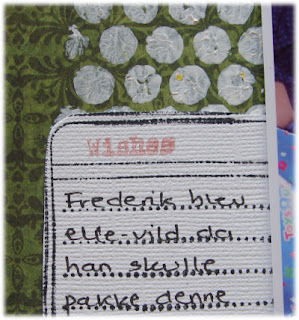 Wishes
Frederik blev
elle-vild da
han skulle
pakke denne